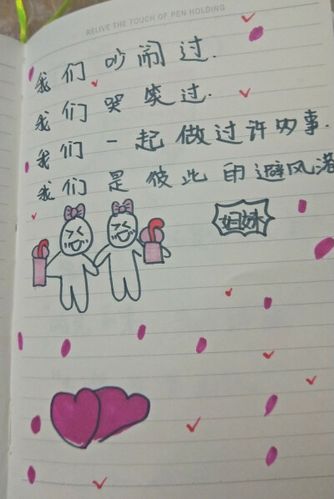 RELIVE THE TOUCH OF PEN HOLDING
我们吵闹过.
我们哭笑过.
我们一起做过许多事.
我们是彼此的避风港
姐妹